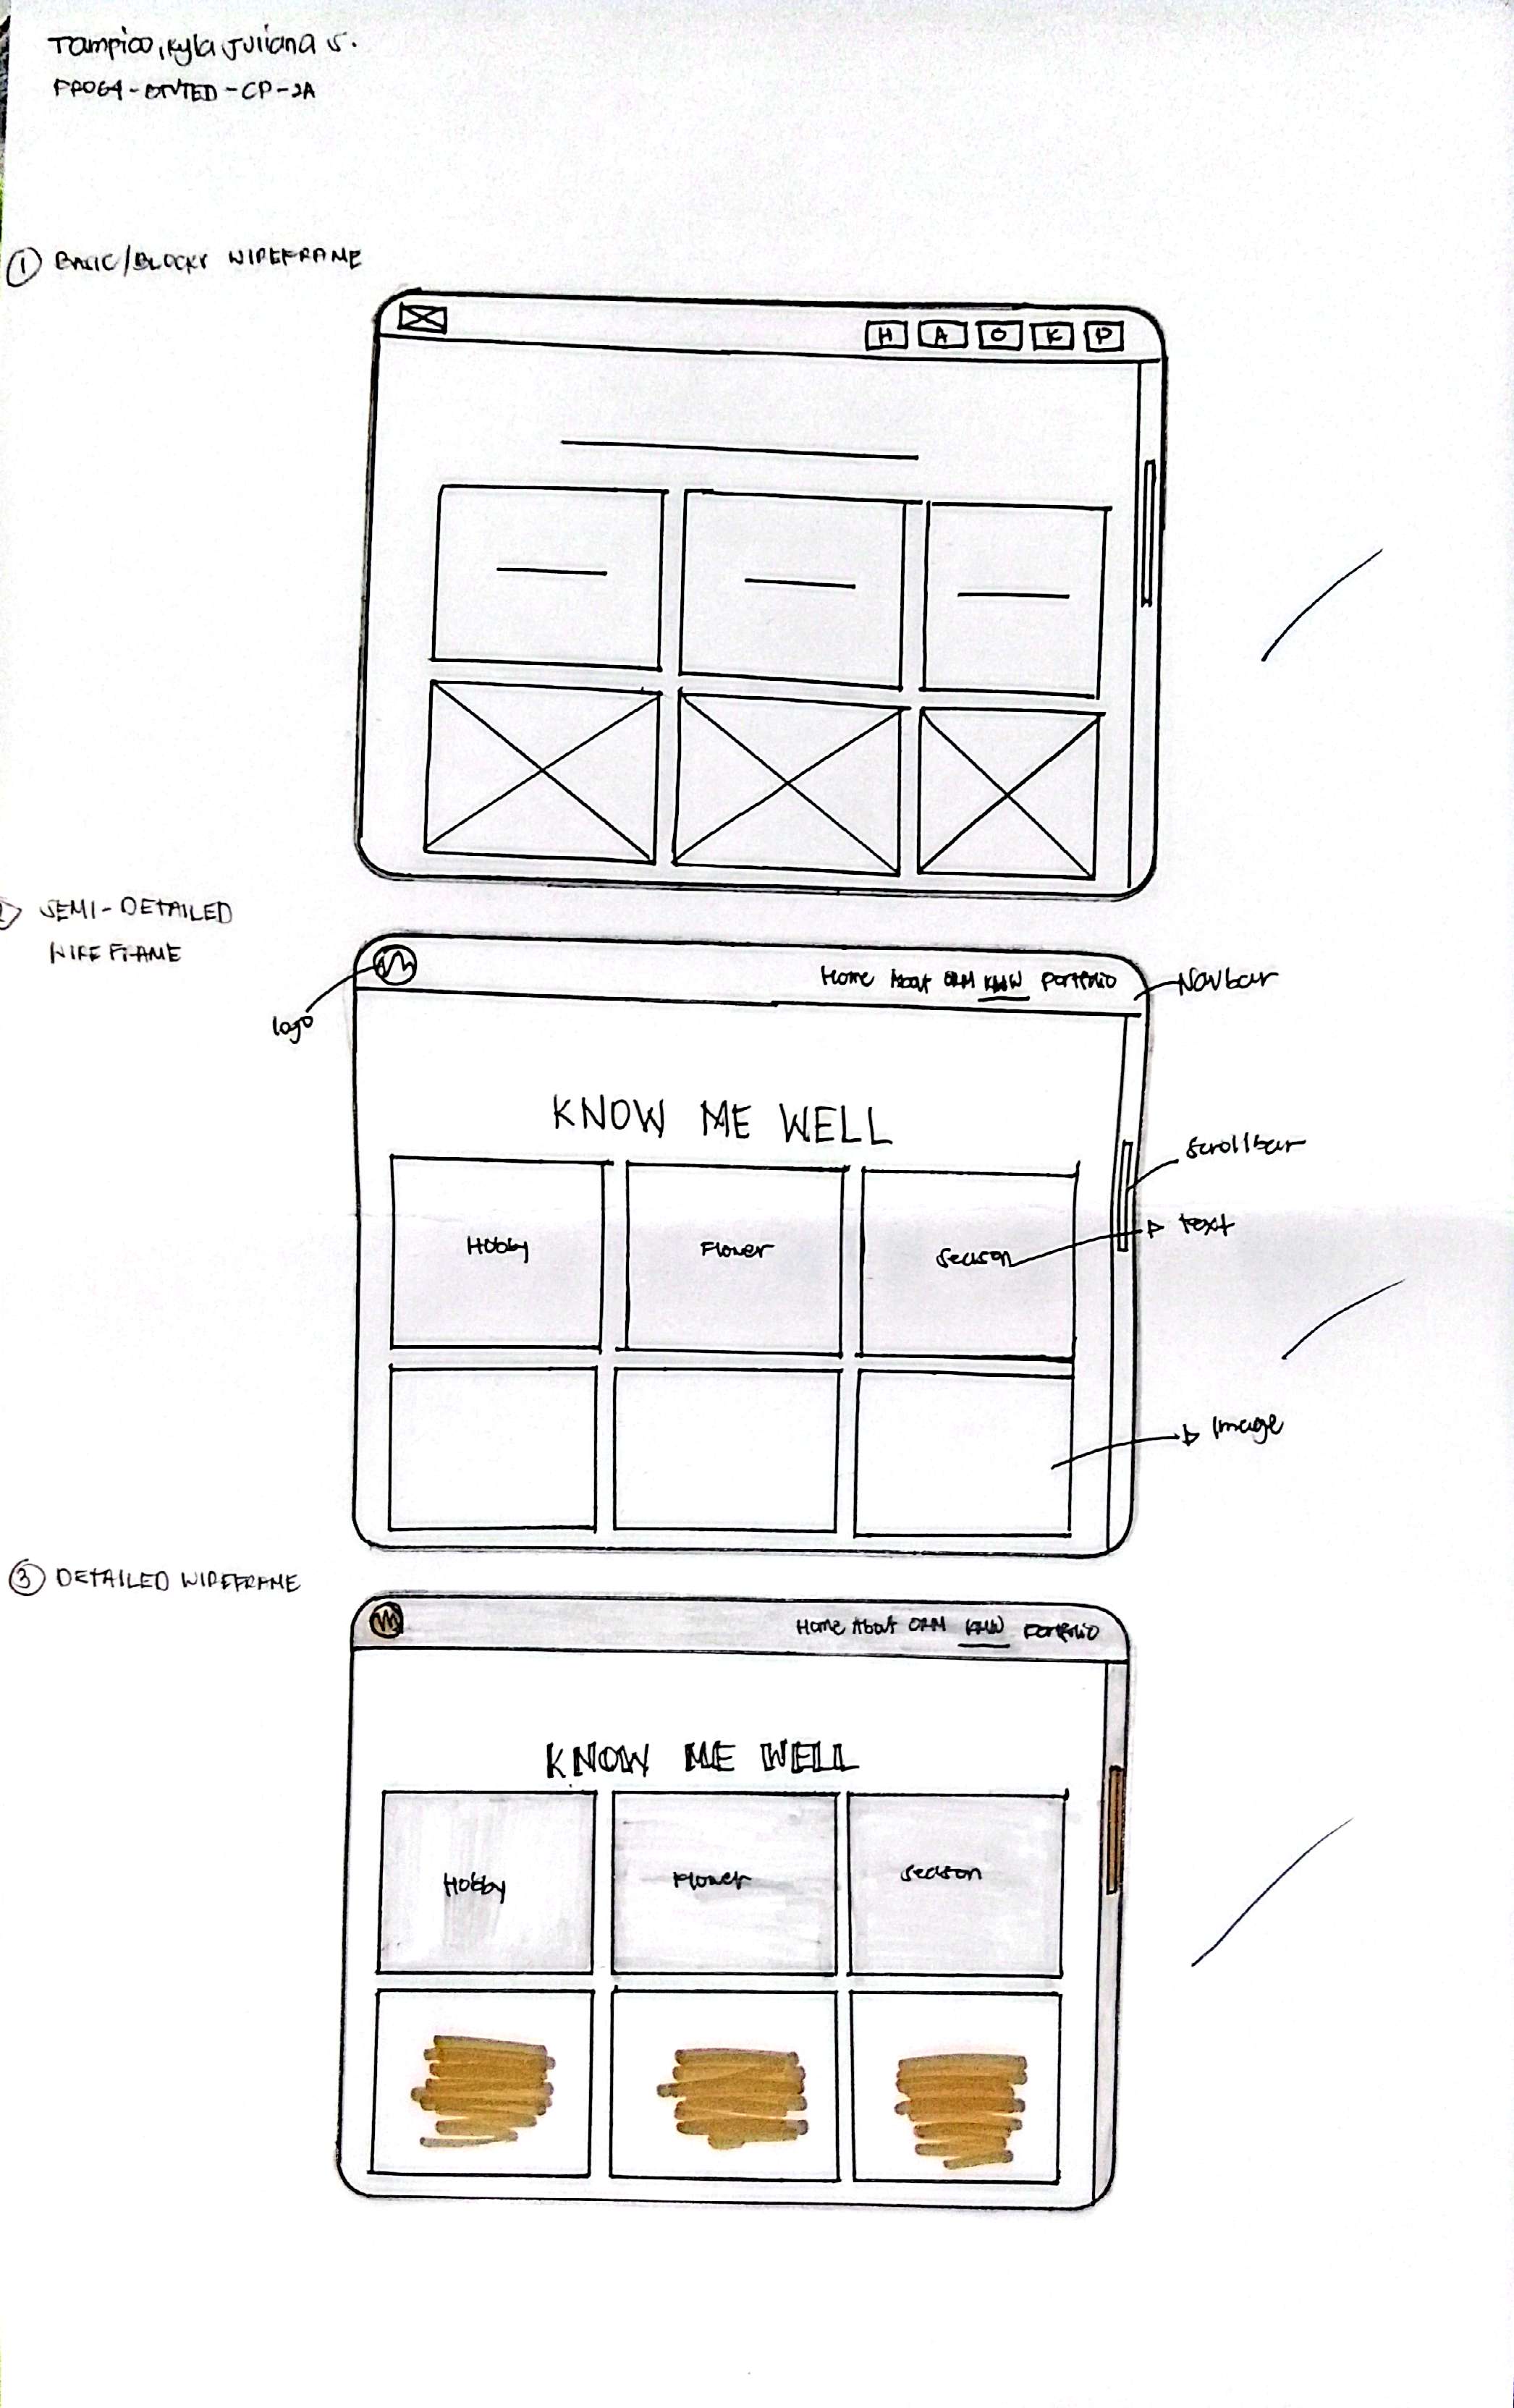 Tampico, Kyla Juliana S.
① BASIC/BLOCKY WIREFRAME
H A O K P
② SEMI-DETAILED
WIREFRAME
Home About ORM KMW Portfolio
Navbar
logo
KNOW ME WELL
scrollbar
Hobby Flower Season
text
Image
③ DETAILED WIREFRAME
Home About ORM KMW Portfolio
KNOW ME WELL
Hobby Flower Season